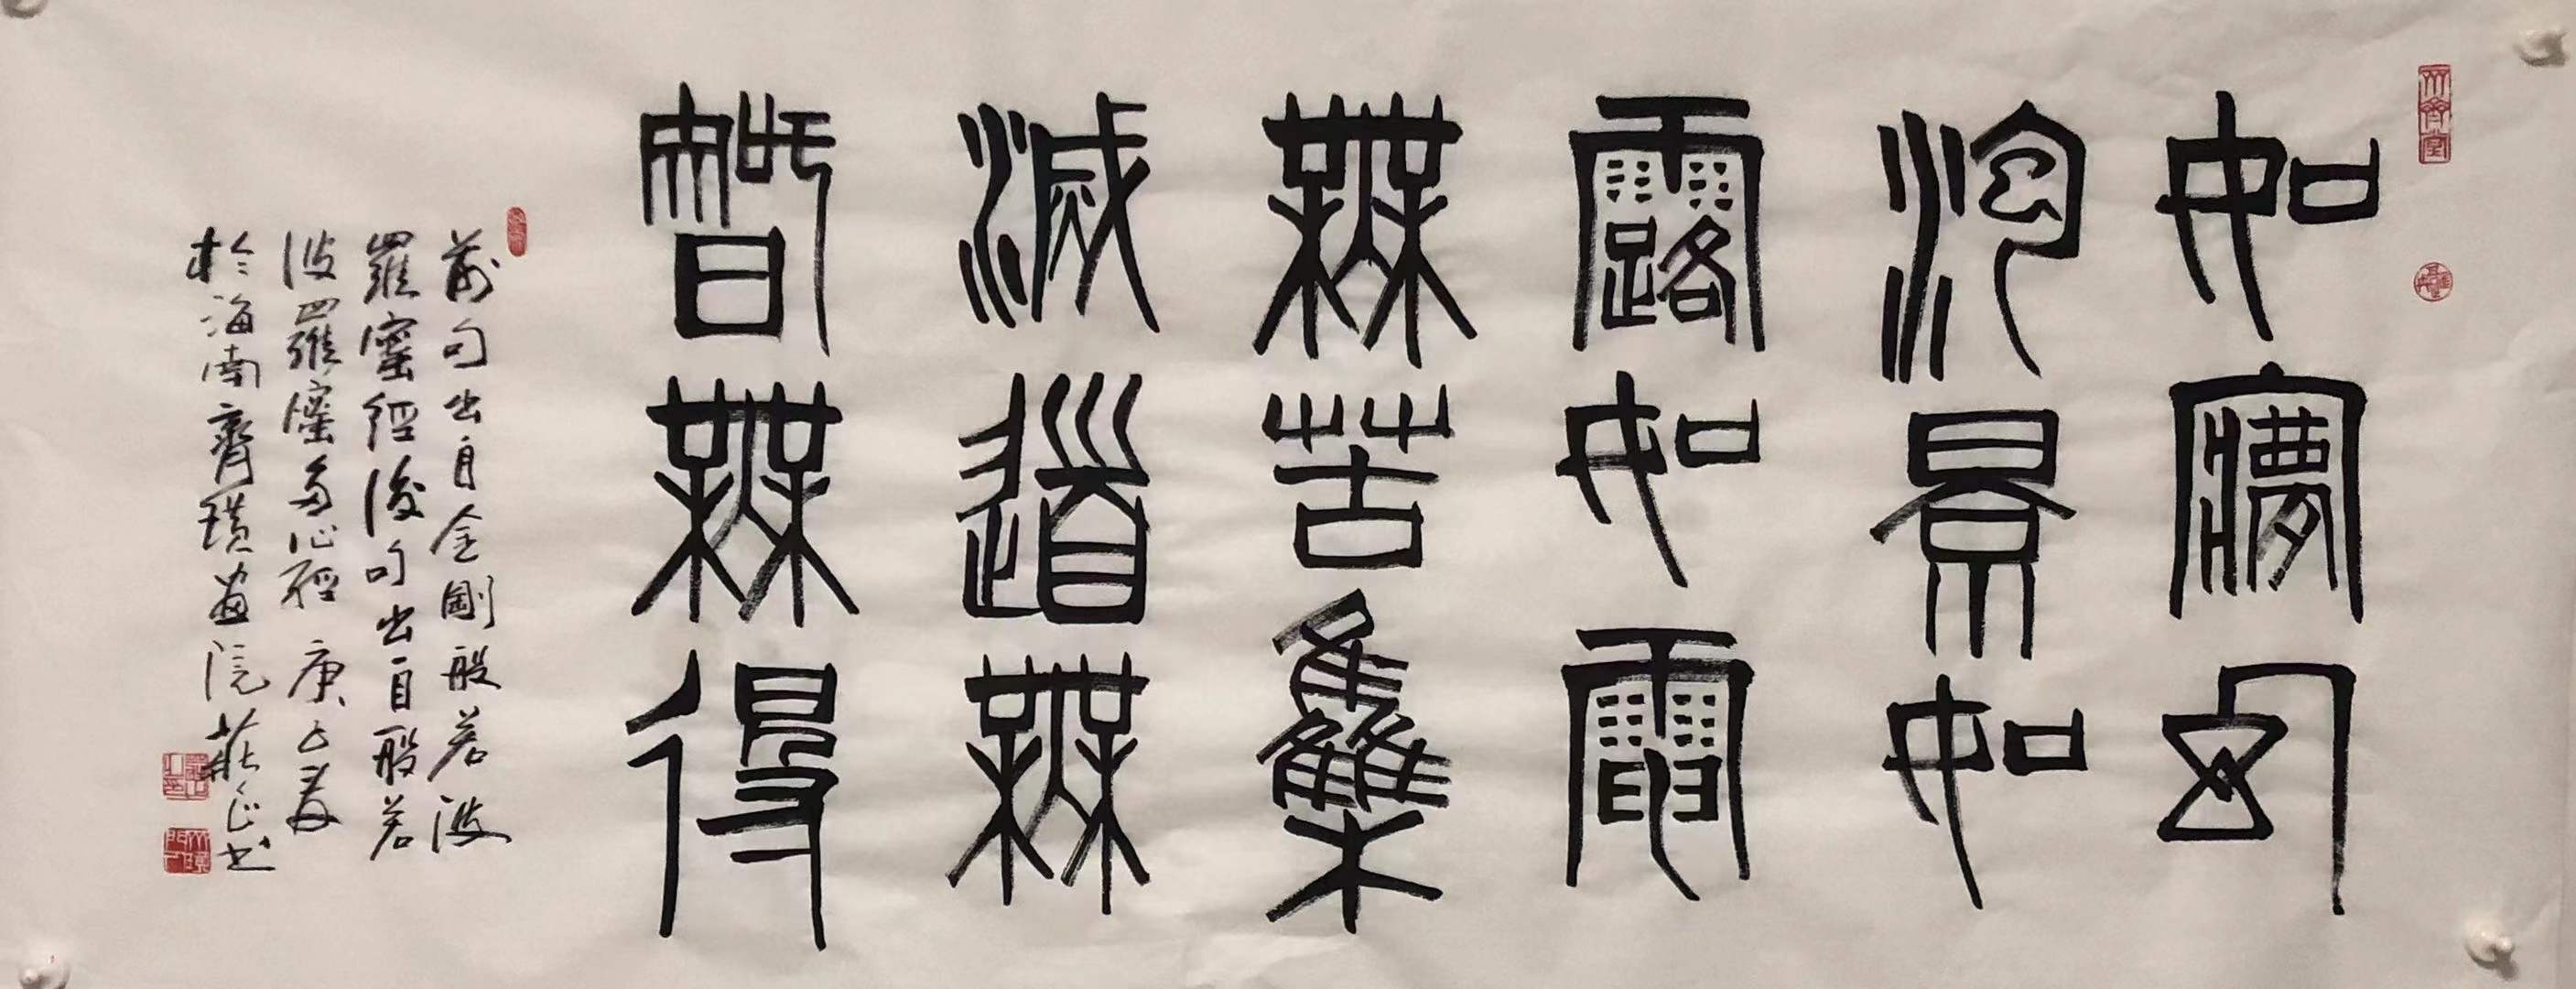 如夢幻
泡景如
露如電
無苦集
滅道無
智無得
前句出自金剛般若波
羅蜜經後句出自般若
波羅蜜多心經庚子
於海南齊璜畫院莊正書